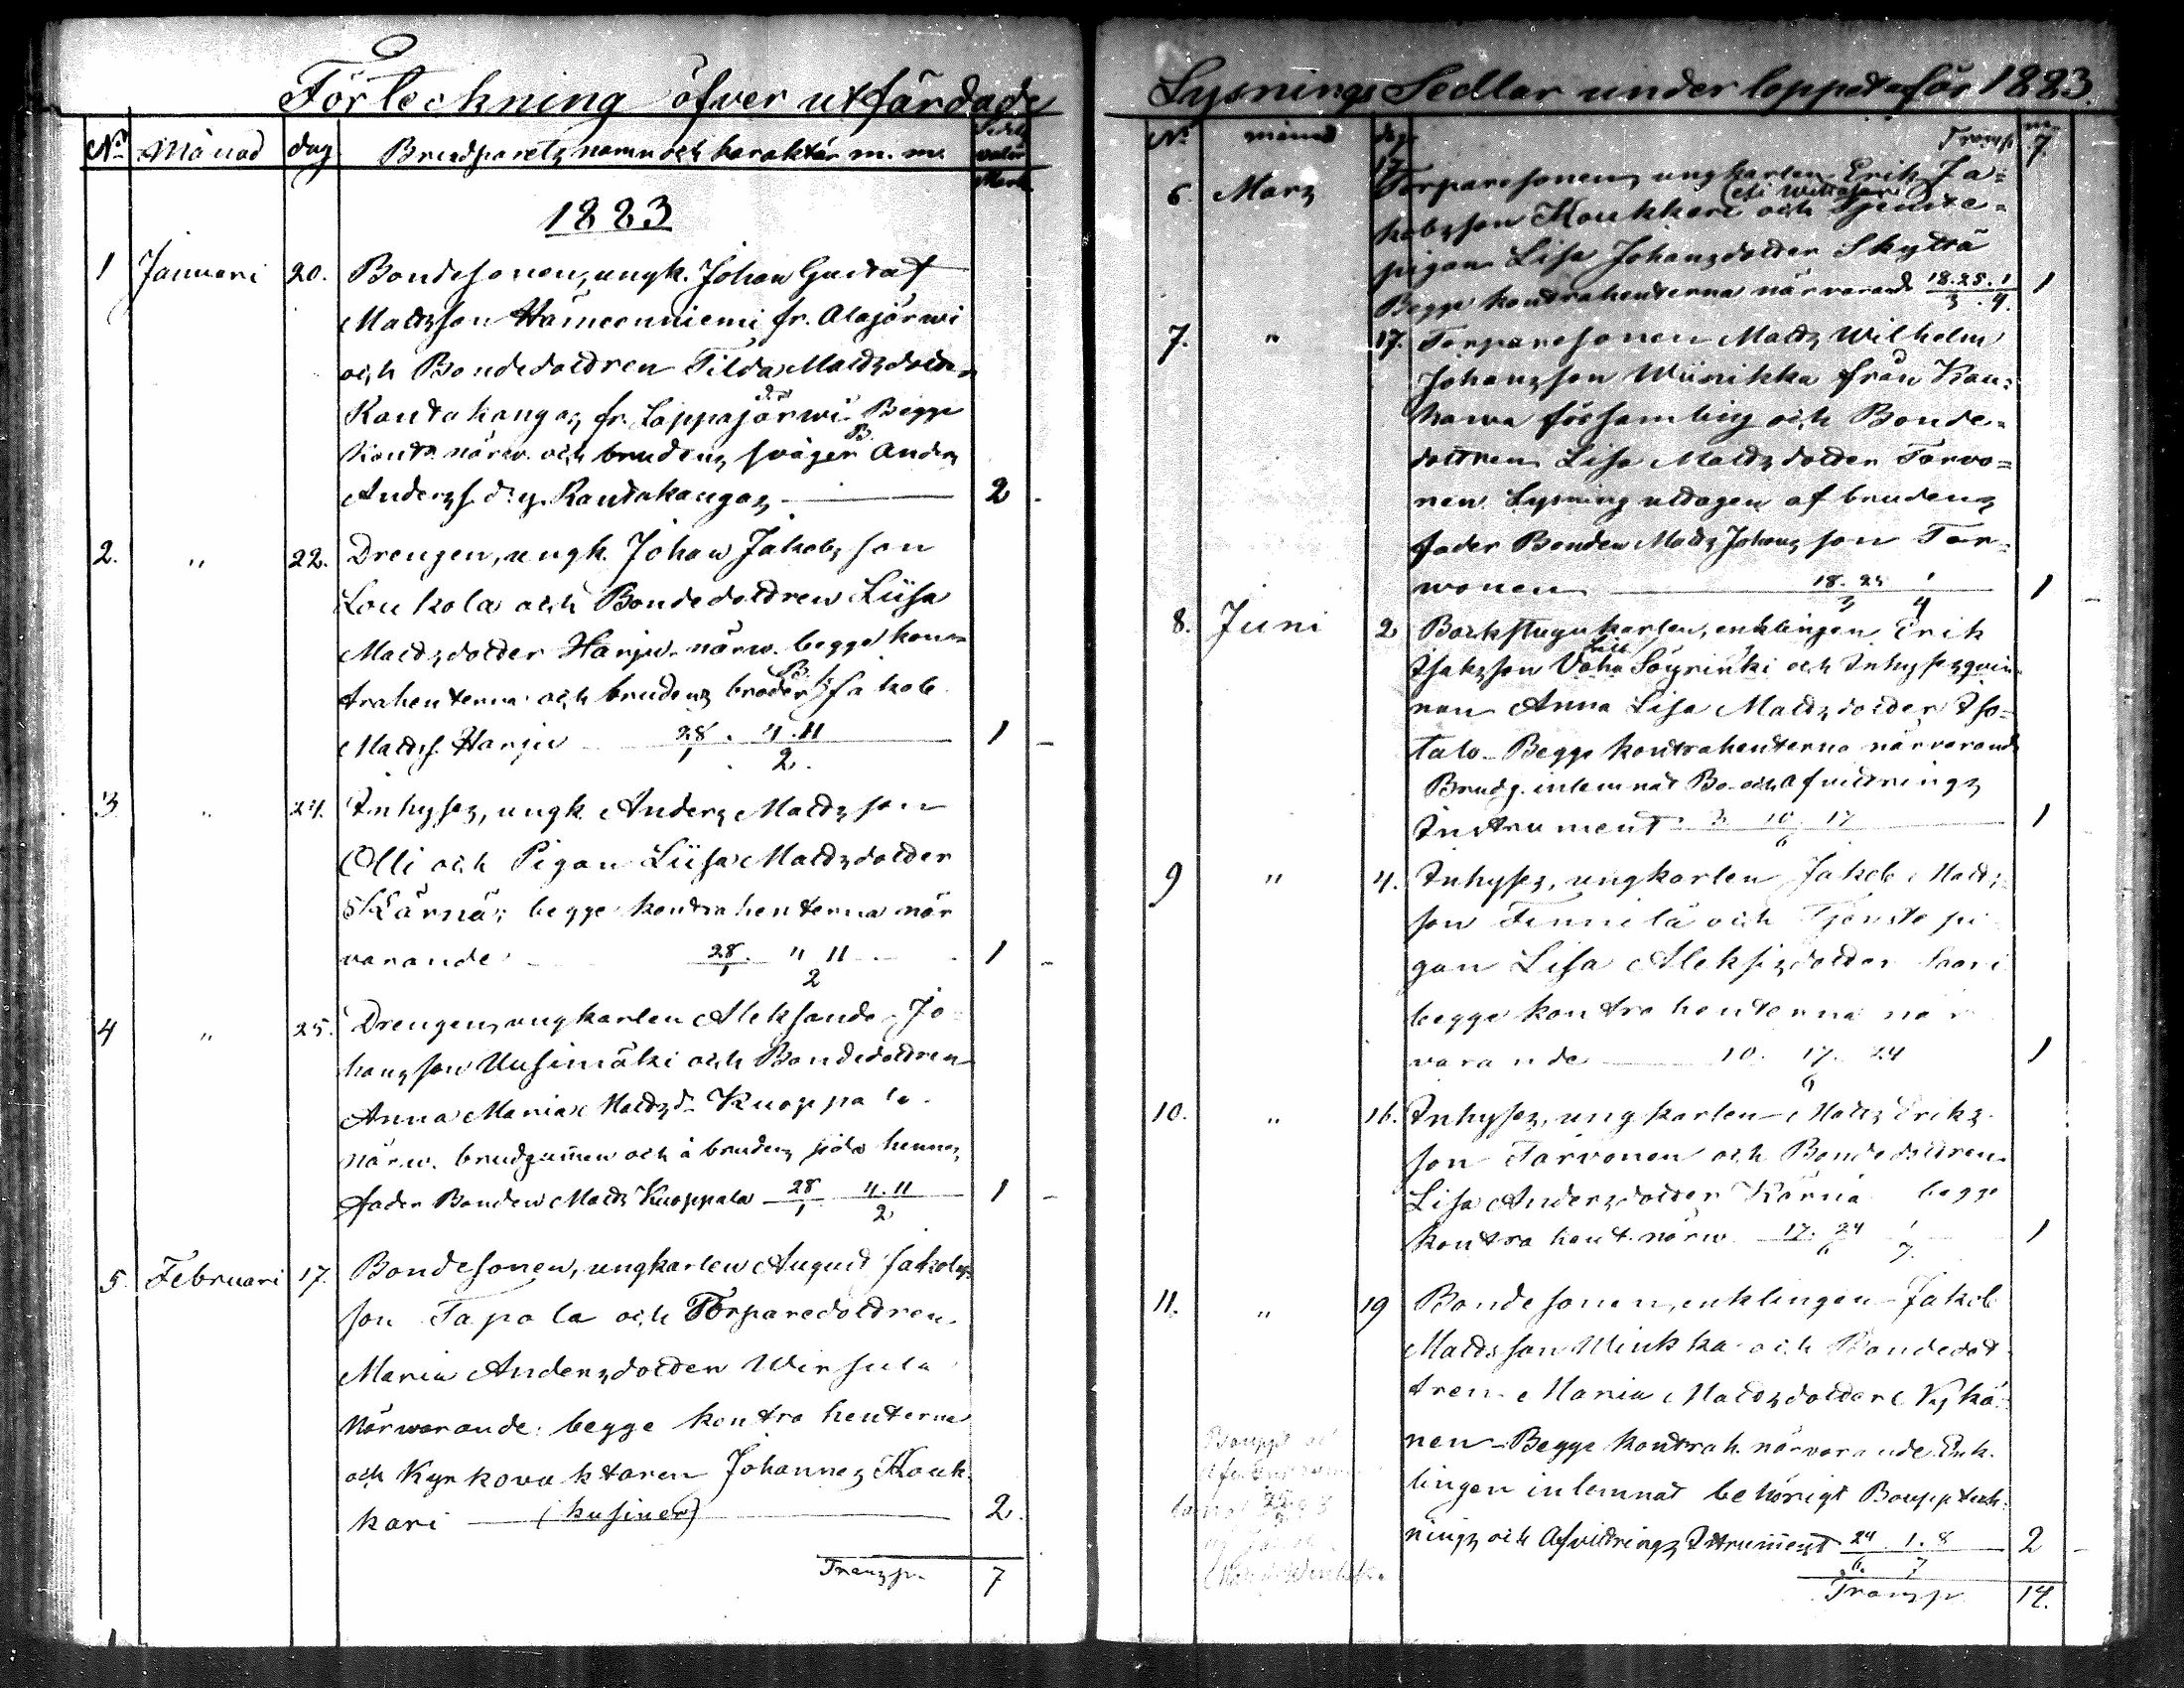 Förteckning öfver utfärdade
No Månad dag Brudparets namn och karaktär m.m. Sedl. valör
Mark
1883
1 Januari 20. Bondesonen, ungk. Johan Gustaf
Mattsson Hämeenniemi fr. Alajärwi
och Bondedottren Tilda Mattsdotter
Rantakangas fr. Lappajärwi. Begge
kontr. närw. och brudens svåger Anders
Anders s. d.y. Rantakangas 2 -
2. " 22. Drengen, ungk. Johan Jakobsson
Loukola och Bondedottren Liisa
Mattsdotter Harju. närw. begge kon-
trahenterna och brudens broder Jakob
Matts s. Harju 28/1 . 4.11/2 1 -
3 " 24. Inhyses, ungk. Anders Mattsson
Olli och Pigan Liisa Mattsdotter
Kärnä; begge kontrahenterna när
varande 28/1 . 4 11/2 1 -
4 " 25. Drengen, ungkarlen Aleksander Jo-
hansson Uusimäki och Bondedottren
Anna Maria Mattsd. Kuoppala.
Närw. brudgummen och å brudens sida hennes
fader Bonden Matts Kuoppala 28/1 4.11/2 1 -
5. Februari 17. Bondesonen, ungkarlen August Jakobs-
son Tapola och Torparedottren
Maria Andersdotter Wirsula
Närwarande: begge kontrahenterna
och Kyrkovaktaren Johannes Kouk-
kari (kusiner) 2.
Transp. 7
Lysnings Sedlar under loppet af år 1883.
No månad dag Transp. m. 7.
6. Mars 17 Torparesonen, ungkarlen Erik Ja-
kobsson Koukkari och Tjenste-
pigan Lisa Johansdotter Skyttä
Begge kontrahenterna närvarande 18.25/3 . 1/4. 1
7. " 17. Torparesonen Matts Wilhelm
Johansson Wiinikka från Kau-
hawa församling och Bonde-
dottren Lisa Mattsdotter Torvo-
nen. Lysning uttagen af brudens
fader Bonden Matts Johansson Tor-
wonen 18. 25/3 1/4 1 -
8. Juni 2 Backstugukarlen, enklingen Erik
Isaksson Vähä Söyrinki och Inhysesqvin-
nan Anna Lisa Mattsdotter Iso-
talo. Begge kontrahenterna närvarande
Brudg. inlemnat Bo- och Afvittrings
Instrument 3. 10. 17/6 1
9 " 4. Inhyses, ungkarlen Jakob Matts-
son Finnilä och Tjenstepi
gan Lisa Aleksisdotter Saari
begge kontrahenterna när
varande 10. 17. 24/6 1
10. " 16. Inhyses, ungkarlen Matts Eriks-
son Torvonen och Bondedottren
Lisa Andersdotter Kärnä begge
kontrahent. närw. 17. 24/6 1/7. 1
11. " 19 Bondesonen, enklingen Jakob
Mattsson Winkka och Bondedot
tren Maria Mattsdotter Nykä-
nen. Begge kontrah. närvarande Enk-
lingen inlemnat behörigt Bouppteck-
nings och Afvittrings Instrument 24/6. 1.8/7 2 -
Transp 14.